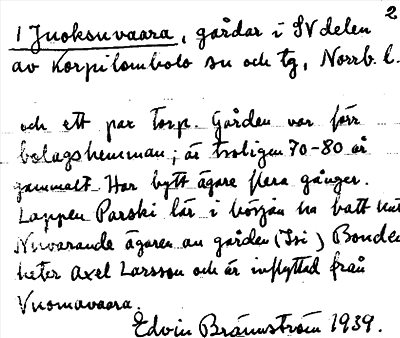 2
1 Juoksuvaara, gårdar i SV delen
av Korpilombolo sn och tg, Norrb. l.
och ett par torp. Gården var förr
bolagshemman; är troligen 70-80 år
gammalt. Har bytt ägare flera gånger.
Lappen Parski lär i början ha hatt hus
Nuvarande ägaren av gården (Isi) Bonden
heter Axel Larsson och är inflyttad från
Vuomavaara.
Edvin Brännström 1939.